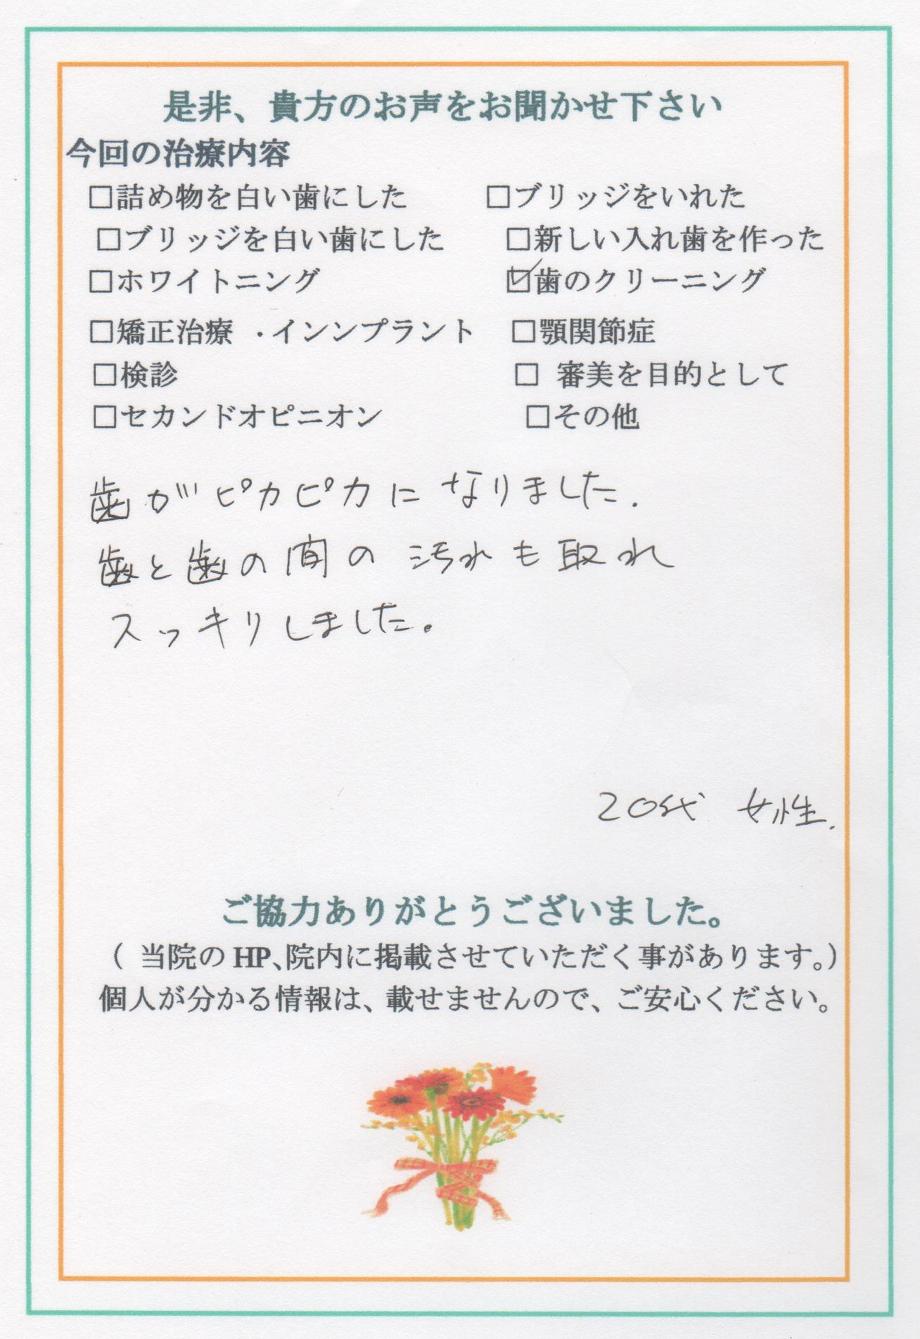 是非、貴方のお声をお聞かせ下さい
今回の治療内容
□詰め物を白い歯にした □ブリッジをいれた
□ブリッジを白い歯にした □新しい入れ歯を作った
□ホワイトニング ☑歯のクリーニング
□矯正治療 ・インンプラント □顎関節症
□検診 □ 審美を目的として
□セカンドオピニオン □その他
歯がピカピカになりました.
歯と歯の間の汚れも取れ
スッキリしました。
20代 女性.
ご協力ありがとうございました。
( 当院のHP、院内に掲載させていただく事があります。)
個人が分かる情報は、載せませんので、ご安心ください。